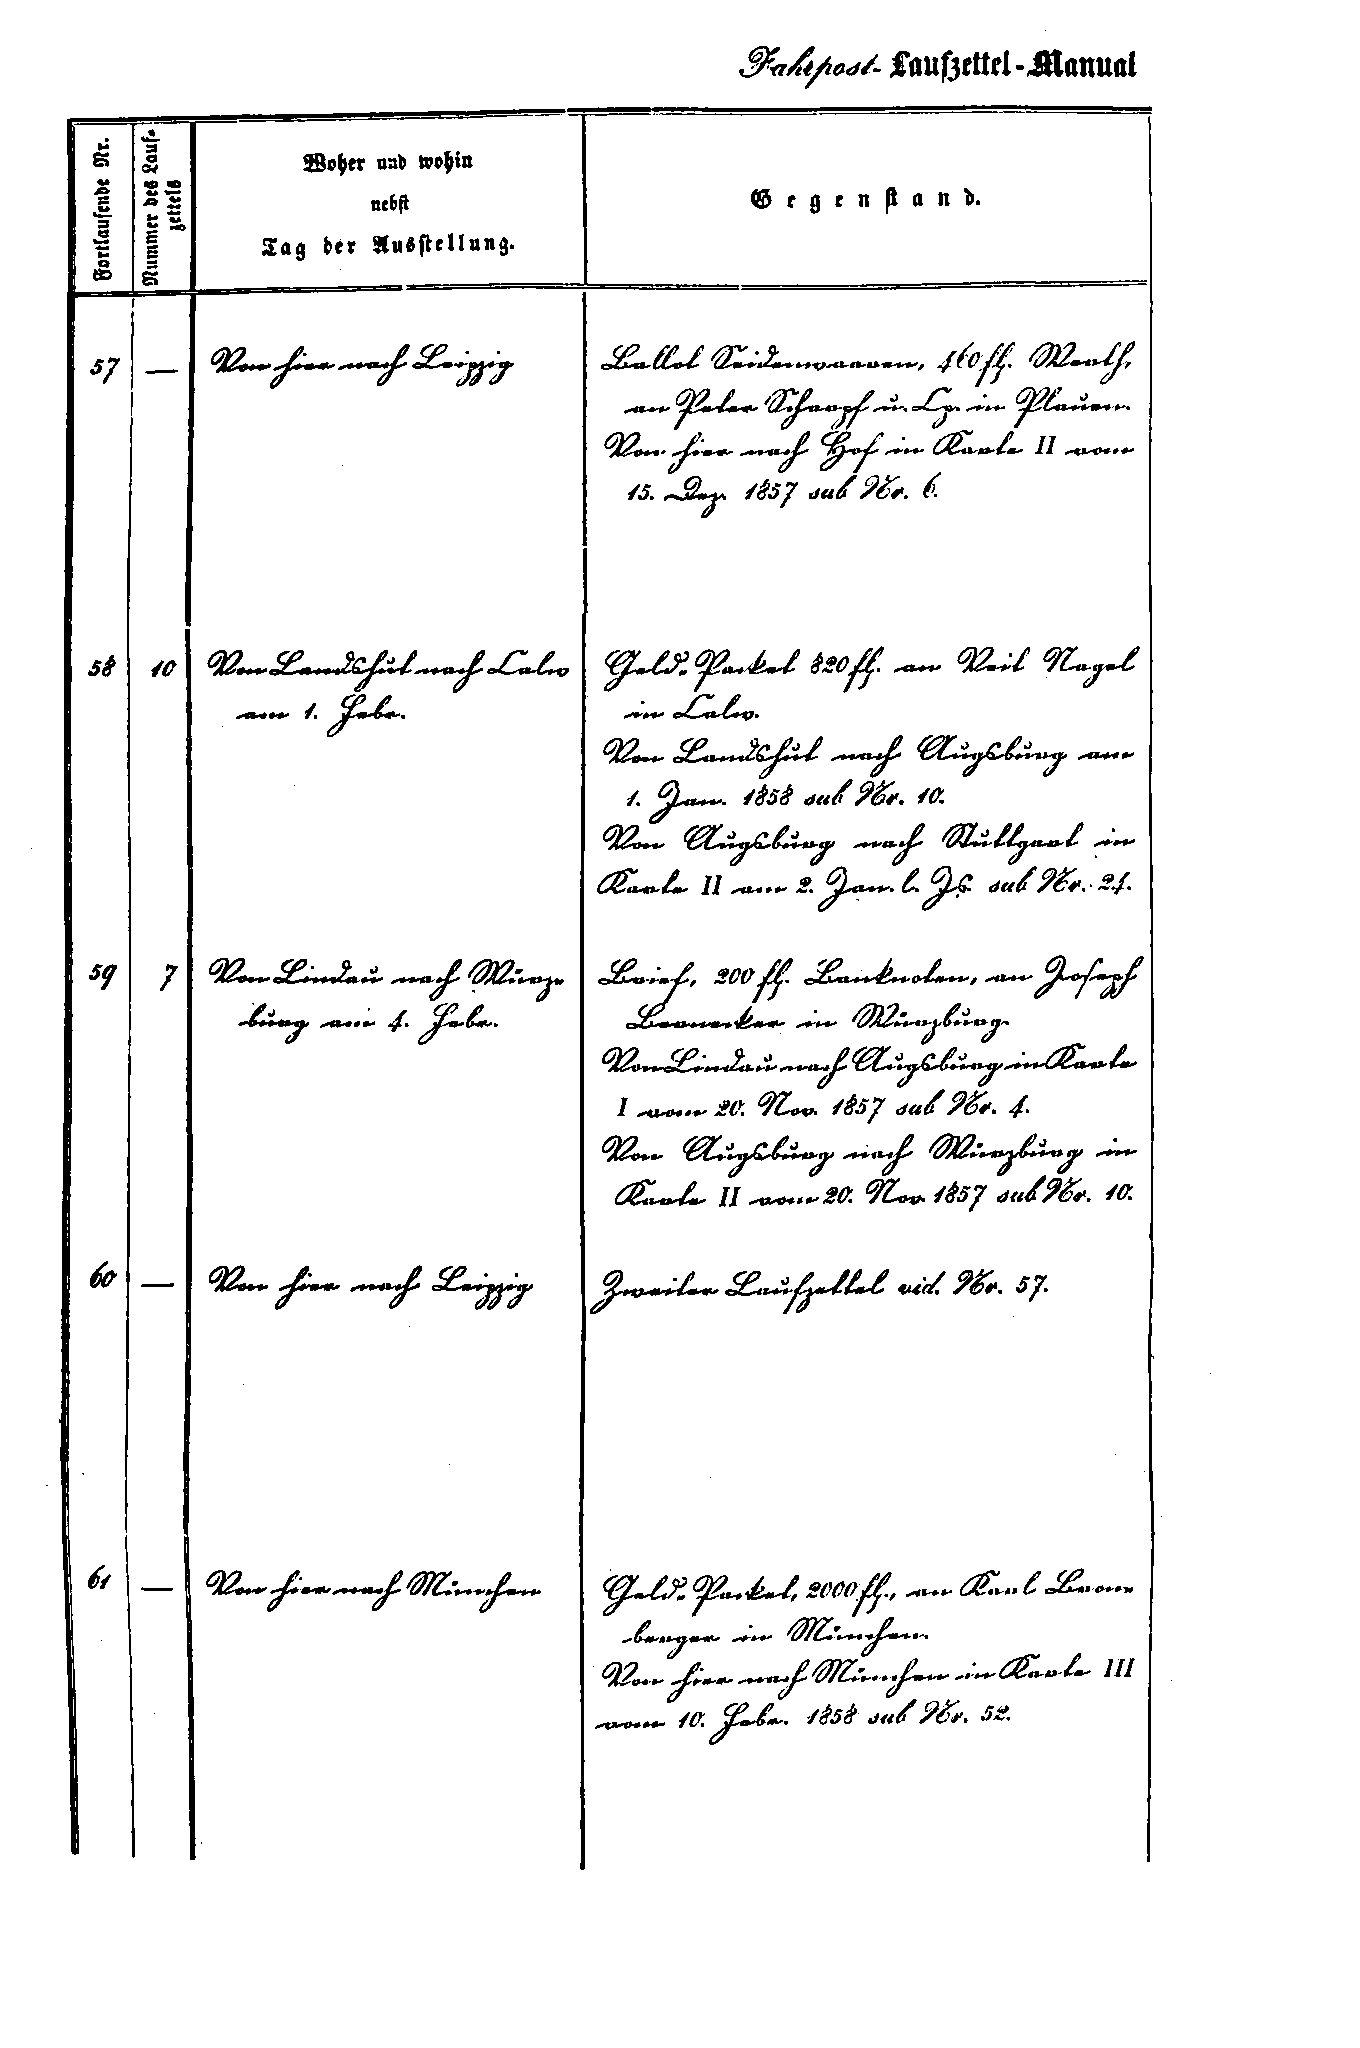 Fahrpost-Laufzettel-Manual
Fortlaufende Nr.
Nummer des Lauf-
zettels
Woher und wohin
nebst
Tag der Ausstellung.
Gegenstand.
57 — Von hier nach Leipzig
Ballot Seidenwaaren, 460 fl. Werth,
an Peter Scharpf u. Cp. in Plauen.
Von hier nach Hof in Karte II vom
15. Dez. 1857 sub Nr. 6.
58 10 Von Landshut nach Calw
am 1. Febr.
Geld-Packet 820 fl. an Veit Nagel
in Calw.
Von Landshut nach Augsburg am
1. Jan. 1858 sub Nr. 10.
Von Augsburg nach Stuttgart in
Karte II am 2. Jan. l. Js. sub Nr. 24.
59 7 Von Lindau nach Würz-
burg am 4. Febr.
Brief, 200 fl. Banknoten, an Joseph
Bernecker in Würzburg.
Von Lindau nach Augsburg in Karte
I vom 20. Nov. 1857 sub Nr. 4.
Von Augsburg nach Würzburg in
Karte II vom 20. Nov. 1857 sub Nr. 10.
60 — Von hier nach Leipzig
Zweiter Laufzettel vid. Nr. 57.
61 — Von hier nach München
Geld-Packet, 2000 fl., an Karl
berger in München.
Von hier nach München in Karte III
vom 10. Febr. 1858 sub Nr. 52.